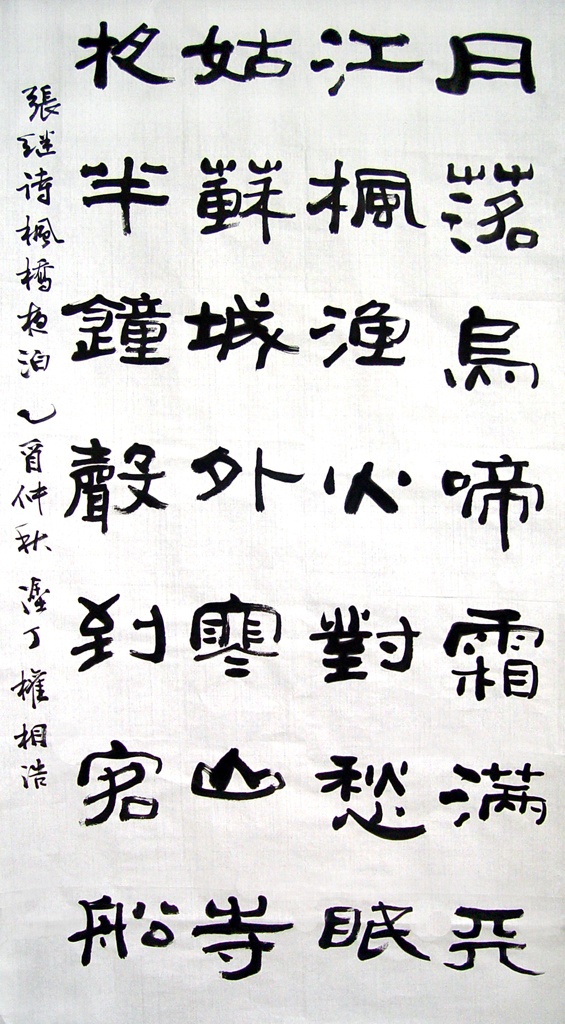 月落烏啼霜滿天
江楓漁火對愁眠
姑蘇城外寒山寺
夜半鐘聲到客船
張继诗楓橋夜泊 乙酉仲秋 塗丁 權相浩